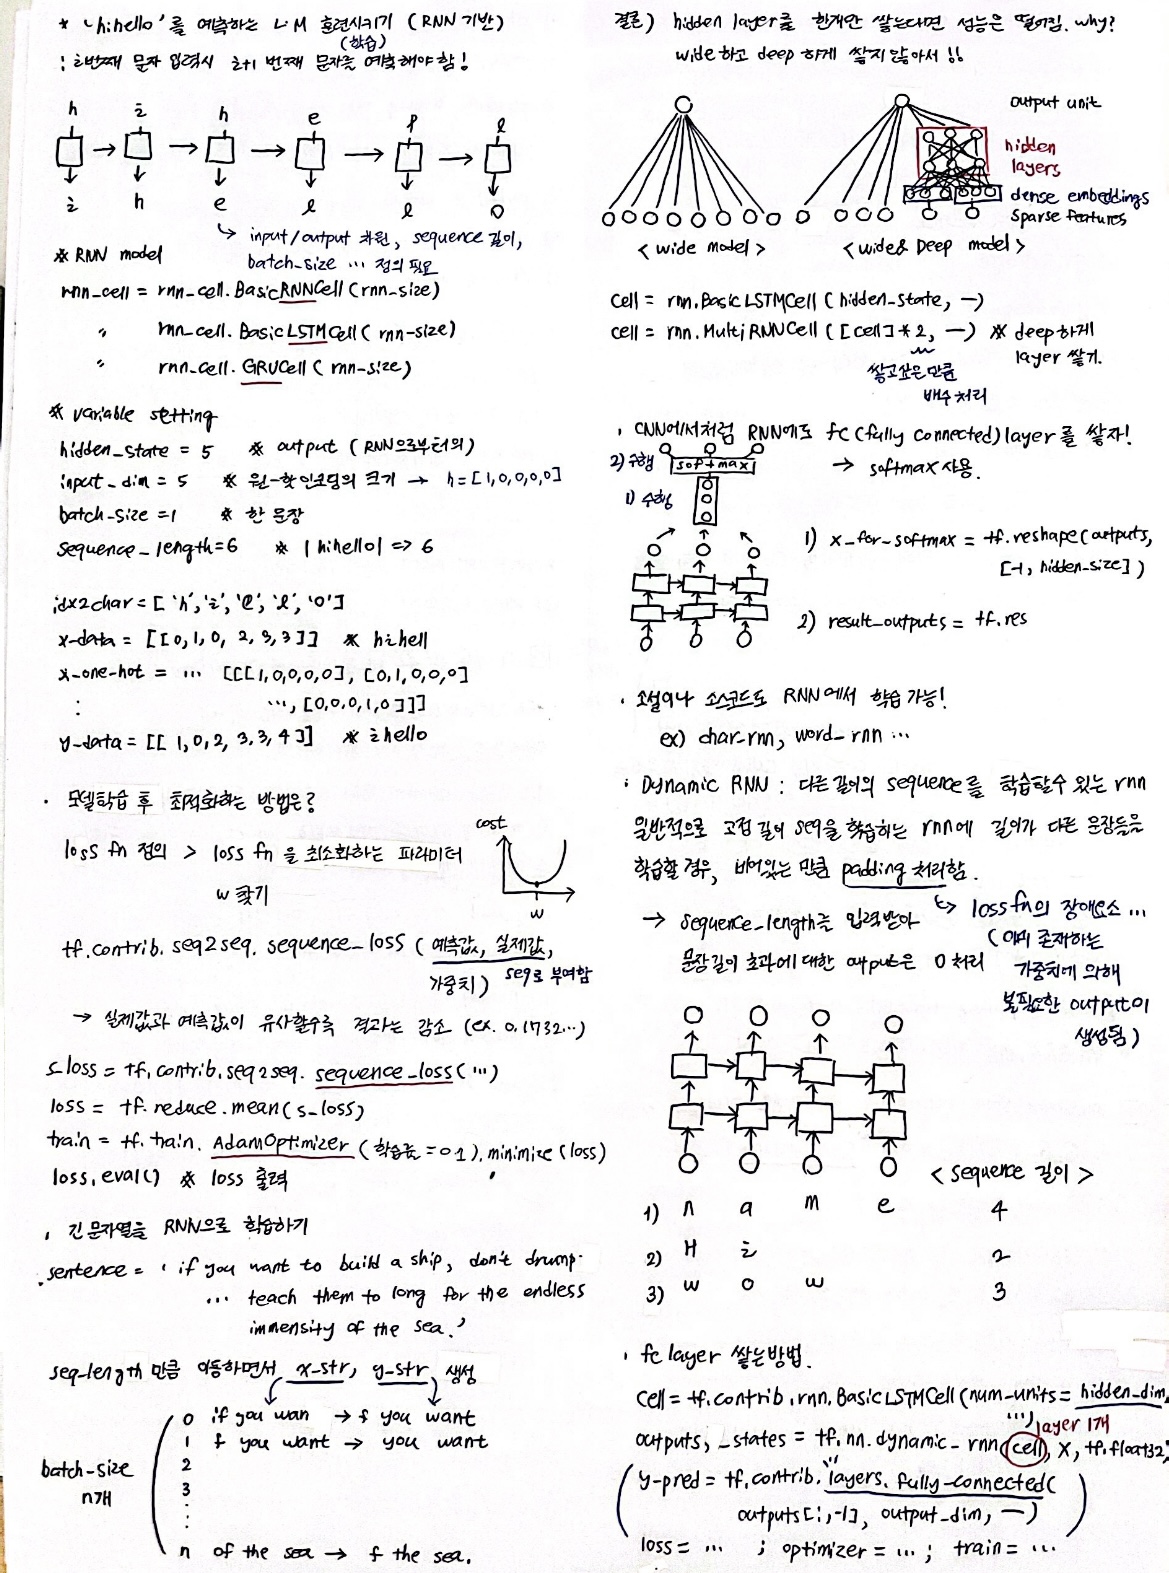 * 'hihello'를 예측하는 LM 훈련시키기 (RNN 기반)
(학습)
: i번째 문자 입력시 i+1 번째 문자를 예측해야 함!
h i h e l l
i h e l l o
↳ input/output 차원, sequence 길이,
batch-size … 정의 필요
* RNN model
rnn_cell = rnn_cell.BasicRNNCell(rnn-size)
〃 rnn_cell.BasicLSTMCell(rnn-size)
〃 rnn_cell.GRUCell(rnn-size)
* variable setting
hidden_state = 5 * output (RNN으로부터의)
input_dim = 5 * 원-핫인코딩의 크기 → h=[1,0,0,0,0]
batch-size=1 * 한 문장
sequence_length=6 * |hihello| => 6
idx2char = ['h','i','e','l','o']
x-data = [[0,1,0,2,3,3]] * hihell
x-one-hot = … [[[1,0,0,0,0], [0,1,0,0,0]
: …, [0,0,0,1,0]]]
y-data = [[1,0,2,3,3,4]] * ihello
· 모델학습 후 최적화하는 방법은?
loss fn 정의 > loss fn을 최소화하는 파라미터
w 찾기
cost
w
tf.contrib.seq2seq.sequence_loss (예측값, 실제값,
가중치) seq로 부여함
→ 실제값과 예측값이 유사할수록 결과는 감소 (ex. 0.1732…)
s_loss = tf.contrib.seq2seq.sequence_loss(…)
loss = tf.reduce.mean(s_loss)
train = tf.train.AdamOptimizer(학습률=0.1).minimize(loss)
loss.eval() * loss 출력
· 긴 문자열을 RNN으로 학습하기
sentence = 'if you want to build a ship, don't drump·
… teach them to long for the endless
immensity of the sea.'
seq-length 만큼 이동하면서 x-str, y-str 생성
0 if you wan → f you want
1 f you want → you want
2
batch-size
3
n개
n of the sea → f the sea.
결론) hidden layer를 한개만 쌓는다면 성능은 떨어짐. why?
wide하고 deep하게 쌓지 않아서!!
output unit
hidden
layers
dense embeddings
sparse features
<wide model> <wide & Deep model>
cell = rnn.BasicLSTMCell(hidden-state, —)
cell = rnn.MultiRNNCell([cell]*2, —) * deep하게
layer 쌓기.
쌓고싶은만큼
배수 처리
· CNN에서처럼 RNN에도 fc(fully connected)layer를 쌓자!
→ softmax 사용.
2) 수행 softmax
1) 수행
1) x_for_softmax = tf.reshape(outputs,
[-1, hidden-size])
2) result_outputs = tf.res
· 소설이나 소스코드도 RNN에서 학습 가능!
ex) char_rnn, word_rnn …
: Dynamic RNN : 다른 길이의 sequence를 학습할수 있는 rnn
일반적으로 고정 길이 seq을 학습하는 rnn에 길이가 다른 문장들을
학습할 경우, 비어있는 만큼 padding 처리함.
↳ loss fn의 장애요소…
(이미 존재하는
가중치에 의해
불필요한 output이
생성됨)
→ sequence_length를 입력받아
문장길이 초과에 대한 output은 0 처리
<sequence 길이>
1) n a m e 4
2) H i 2
3) w o w 3
· fc layer 쌓는방법.
cell = tf.contrib.rnn.BasicLSTMCell(num-units = hidden_dim,
…) layer 1개
outputs, _states = tf.nn.dynamic_rnn(cell, X, tf.float32,
…
(y-pred = tf.contrib.layers.fully-connected(
outputs[:,-1], output_dim, —)
loss = … ; optimizer = … ; train = …